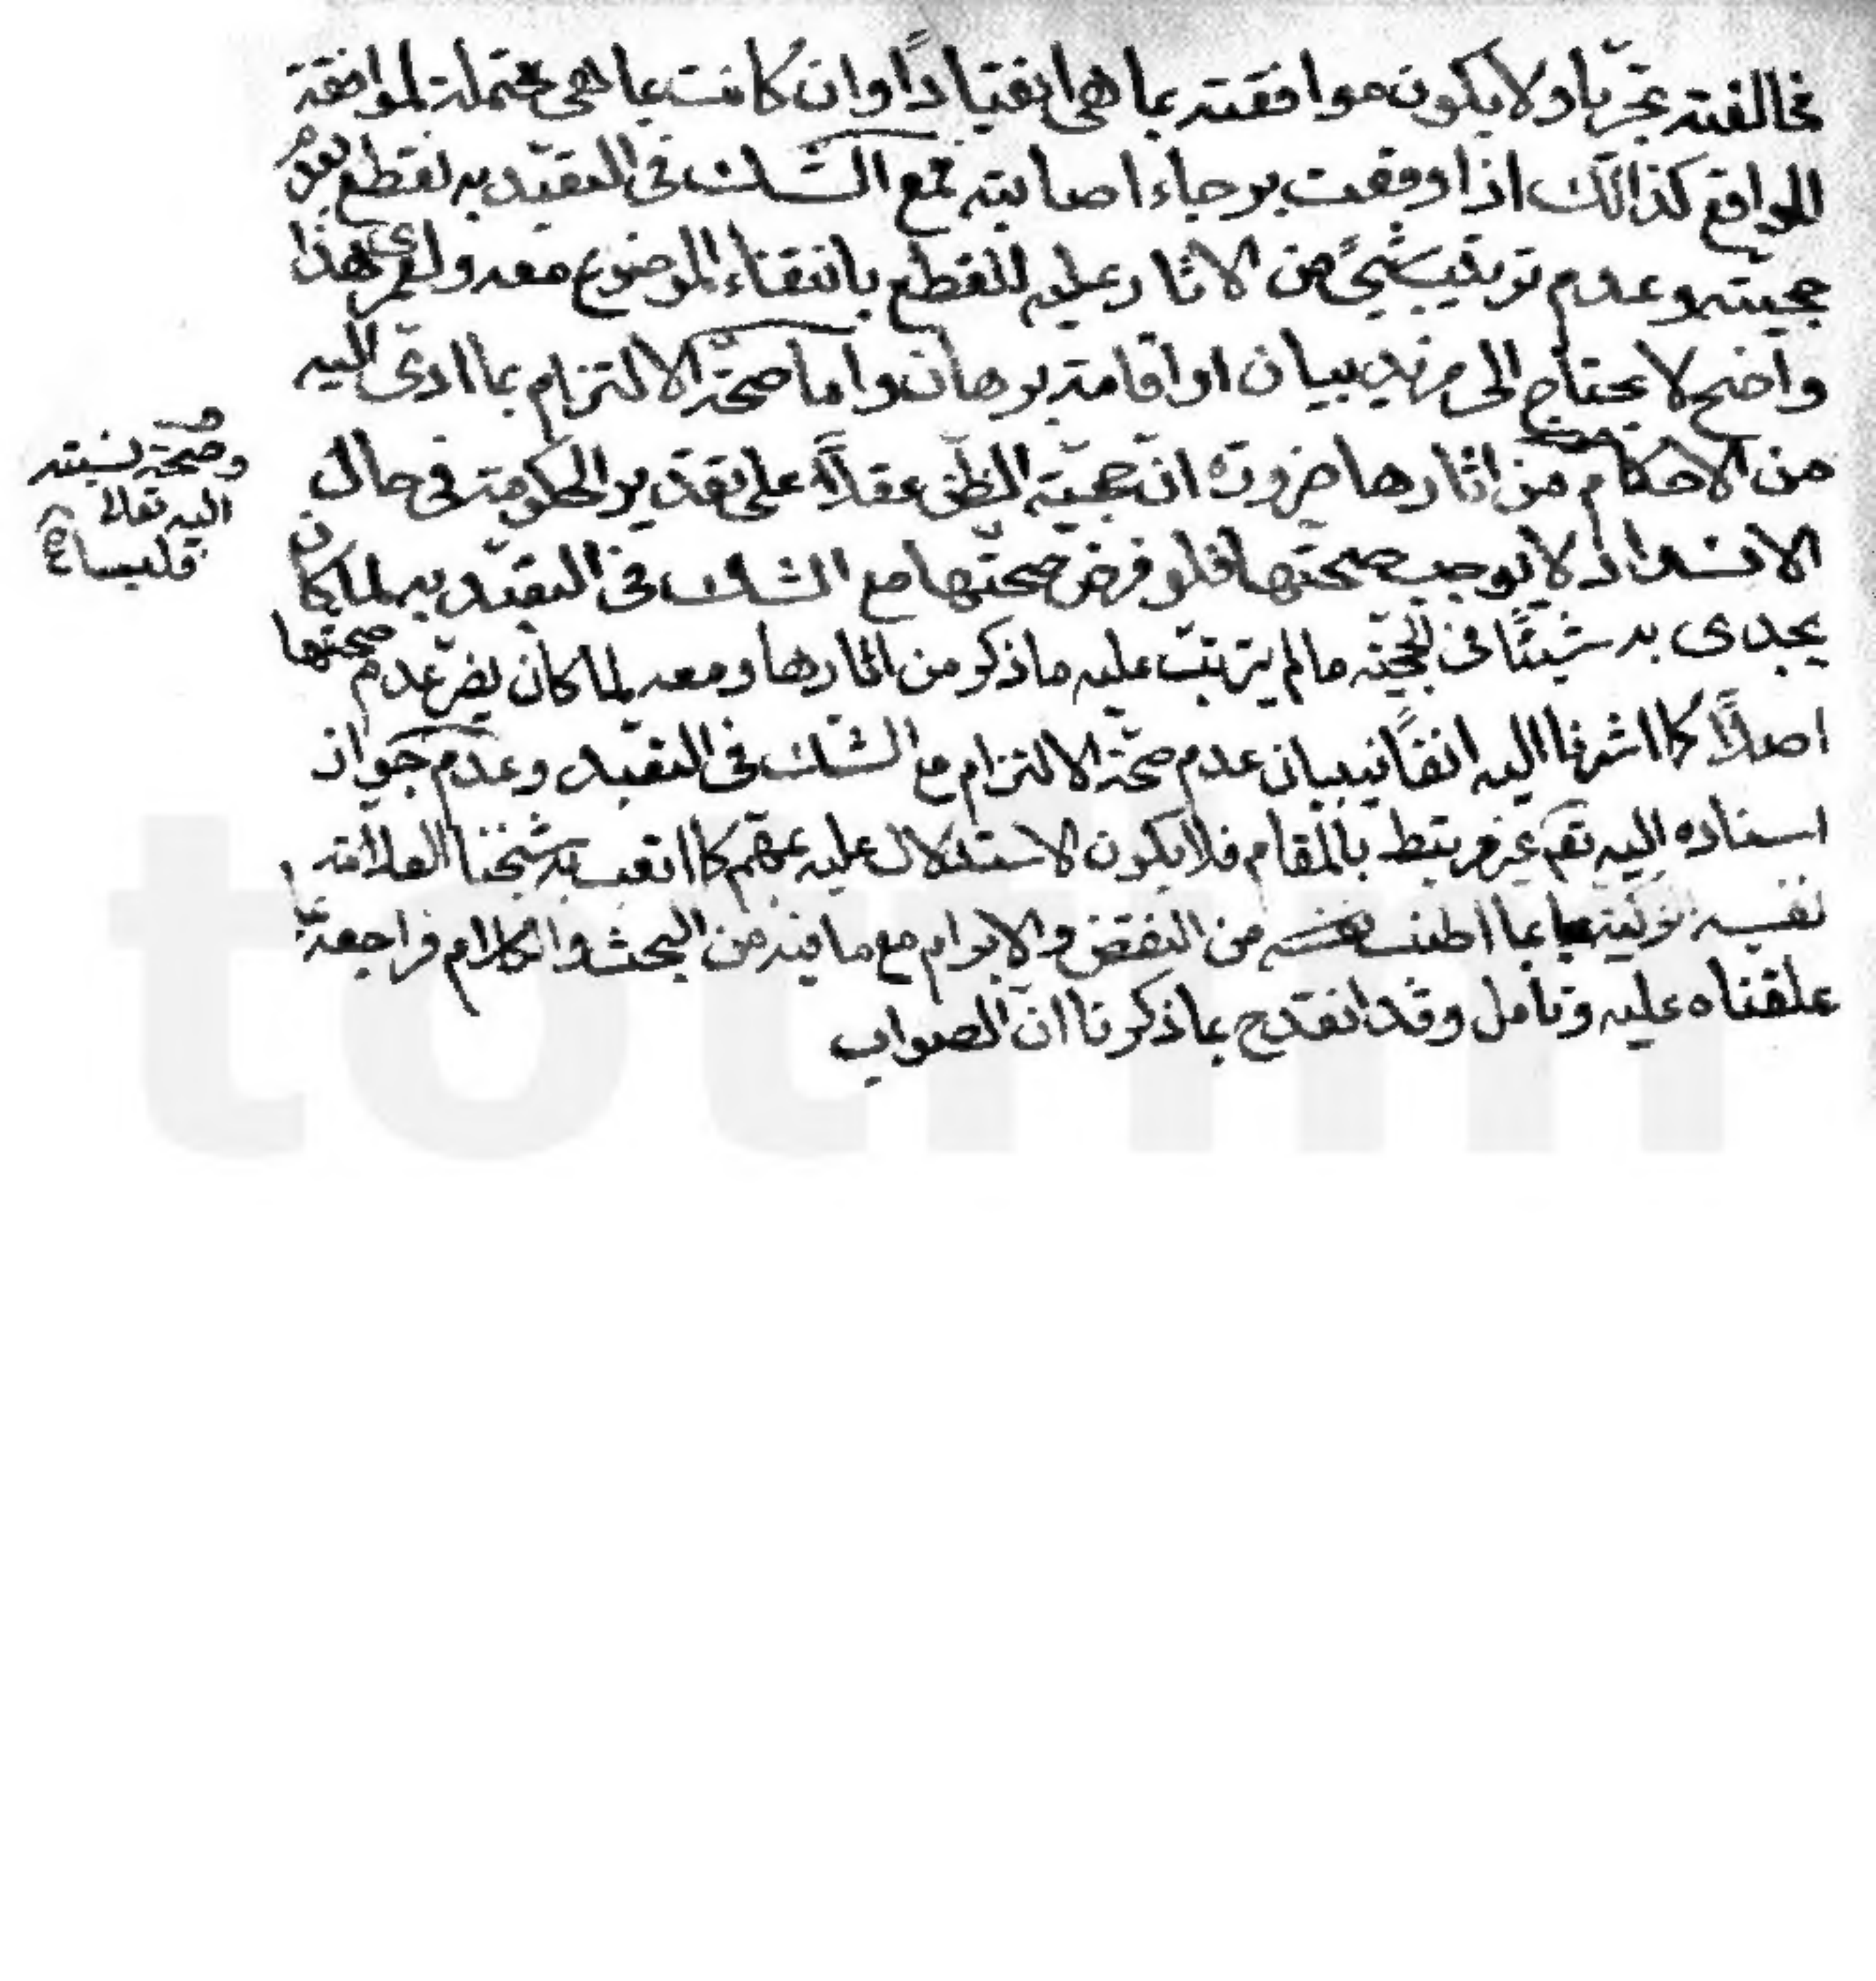 مخالفته تجرّيا ولا يكون موافقته بما هى انقيادًا وان كانت بما هى محتملة لموافقة
الواقع كذالك اذا وقعت برجاء اصابته فمع الشك فى التعبّد به نقطع بعدم
حجيته وعدم ترتيب شئ من الاثار عليه للقطع بانتفاء الموضوع معه ولعمرى هذا
واضح لا يحتاج الى مزيد بيان او اقامة برهان واما صحّة الالتزام بما ادى اليه
من الاحكام
وصحة نسبته
اليه تعالى
فليسا
من اثارها ضرورة انّ حجيّة الظنّ عقلاً على تقدير الحكومة فى حال
الانسداد لا يوجب صحتها فلو فرض صحتها مع الشك فى التعبّد به لما كان
يجدى به شيئًا فى الحجيّة ما لم يترتب عليه ما ذكر من اثارها ومعه لما كان يضرّ عدم صحتها
اصلاً كما اشرنا اليه انفًا فبيان عدم صحّة الالتزام مع الشك فى التعبد وعدم جواز
اسناده اليه تعم غير مرتبط بالمقام فلا يكون الاستدلال عليه بمهمّ كما اتعب به شيخنا العلامة
نفسه الزكيّة بما اطنب من النقض والابرام مع ما فيه من البحث والكلام فراجعه بما
علقناه عليه وتأمل وقد انقدح بما ذكرنا انّ الصواب